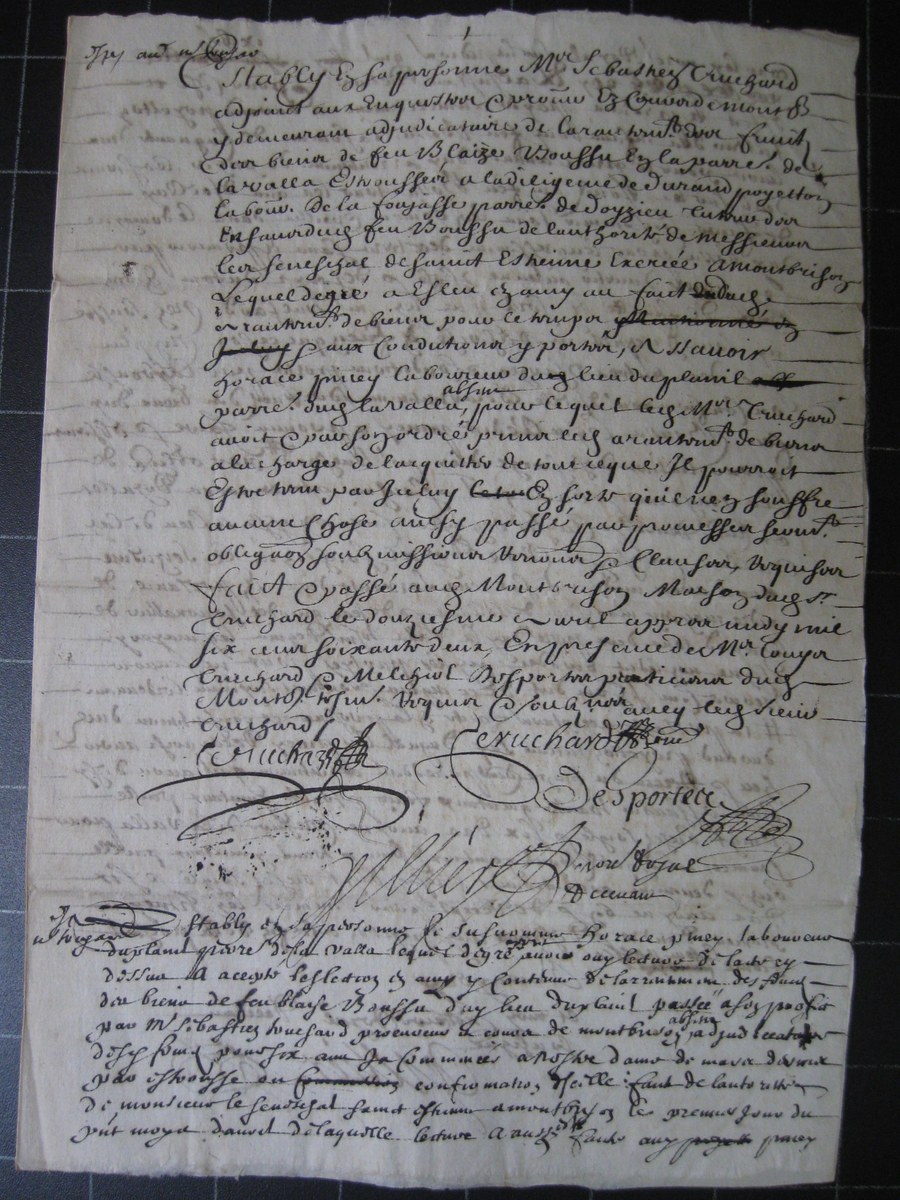 Estably en sa personne Mre Sebastien Truchard
adjoinct aux enquestes & procur en cours de montb
y demeurant adjudicataire de larantemt des fruit
des biens de feu Blaize Boussu en la parre de
lavalla estroussee a la diligence de Durand poyetton
labour de la foujasse parre de doyzieu tuteur des
enfans dud feu Boussu de lauthorité de Messieurs
les seneschal de sainct Estienne Exercée a Montbrison
Lequel de gré a Esleu en amy au faict dud
arantemt de biens pour le temps
& aux Conditions y portes, A Scavoir
horace piney laboureur dud lieu du planil
parre dud lavalla, absent pour lequel led Mre Truchard
avoit & par son ordre prins led arantemt de biens
a la charge de lacquitter de tout ce que Il pourroit
Estre tenu par Iceluy En sorte quil nen souffre
aucune chose ainsy passé par promesses sermt
obligaon soubzmissions renonons & clauses requises
faict & passé aud Montbrison Maison dud Sr
Truchard le douziesme avril appres midy mil
six cens soixante deux, En presence de Mre
Truchard & Melchiol Desportes praticiens dud
Montb tesm. requis & soubzne avecq led sieur
Truchard
Truchard
Truchard
Desportes
Gillier
not royal
Estably en sa personne le susnomme horace piney laboureur
du planil parre de la valla lequel de gré appres avoir ouy lecture de lacte cy
dessus A accepte leslection en amy y contenue de larantemt des fruit
des biens de feu blaise Boussu dud lieu du planil passée a son proffit
par Mre Sebastien truchard procureur en cours de montbrison absent adjudicataire
desd fruit pour six ans Ja commancés a nostre dame de mars dernier
par estrousse ou confirmation dicelle faict de lautorité
de monsieur le seneschal sainct estienne a montbrison le premier jour du
pnt moys davril de laquelle lecture A aussy esté faicte aud piney